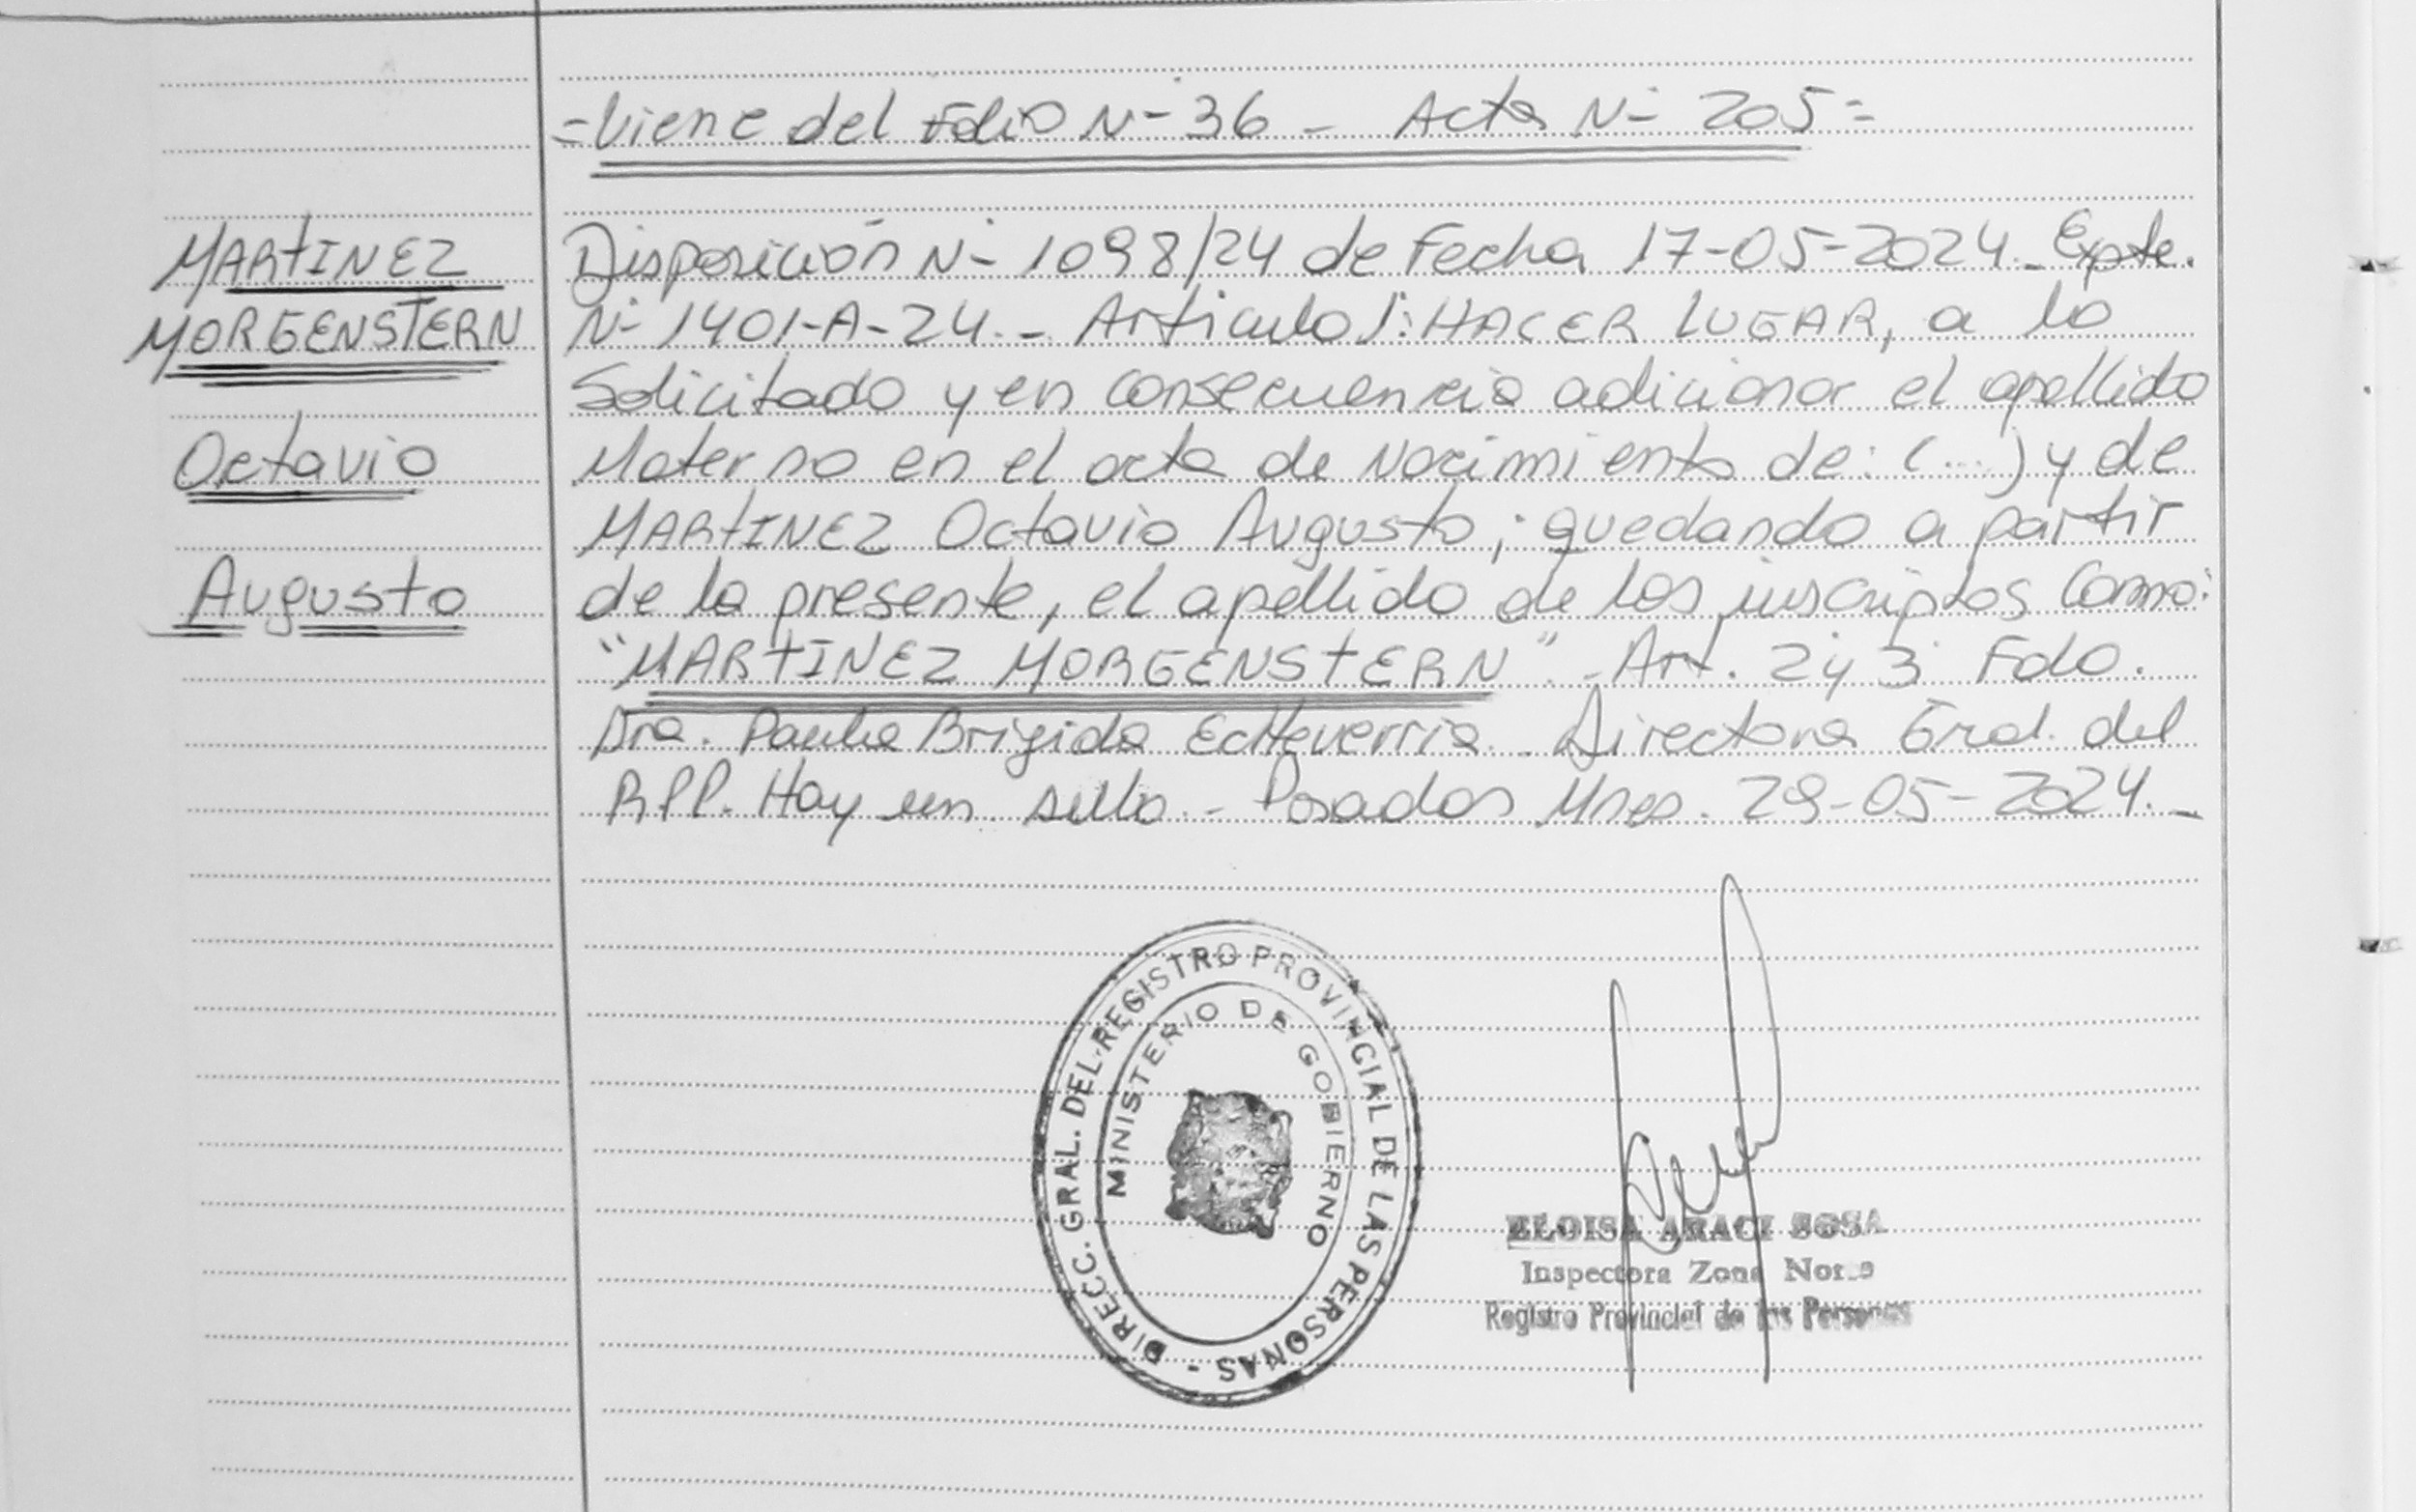 =Viene del Folio N- 36 - Acta N- 205=
MARTINEZ
MORGENSTERN
Octavio
Augusto
Disposición N- 1098/24 de Fecha 17-05-2024_ Expte.
N- 1401-A-24._ Articulo 1: HACER LUGAR, a lo
Solicitado y en consecuencia adicionar el apellido
Materno en el acta de Nacimiento de: (...) y de
MARTINEZ Octavio Augusto; quedando a partir
de la presente, el apellido de los inscriptos Como:
"MARTINEZ MORGENSTERN". - Art. 2 y 3 Fdo.
Dra. Paula Brigida Echeverria. Directora Gral. del
RPP. Hay un sello. - Posadas Mnes. 29-05-2024._
DIRECC. GRAL. DEL REGISTRO PROVINCIAL DE LAS PERSONAS -
MINISTERIO DE GOBIERNO
ELOISA ARACI SOSA
Inspectora Zona Norte
Registro Provincial de las Personas